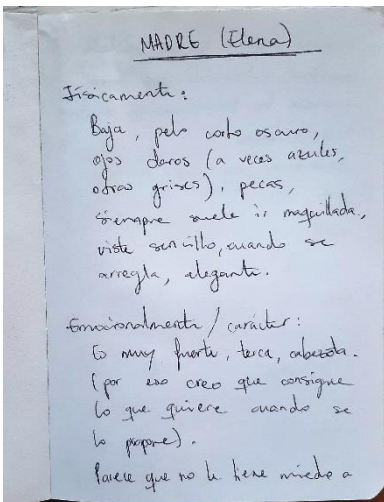 MADRE (Elena)
Físicamente:
Baja, pelo corto oscuro,
ojos claros (a veces azules,
otras grises), pecas,
siempre suele ir maquillada,
viste sencillo, cuando se
arregla, elegante.
Emocionalmente / carácter:
Es muy fuerte, terca, cabezota.
(por eso creo que consigue
lo que quiere cuando se
lo propone).
Parece que no le tiene miedo a